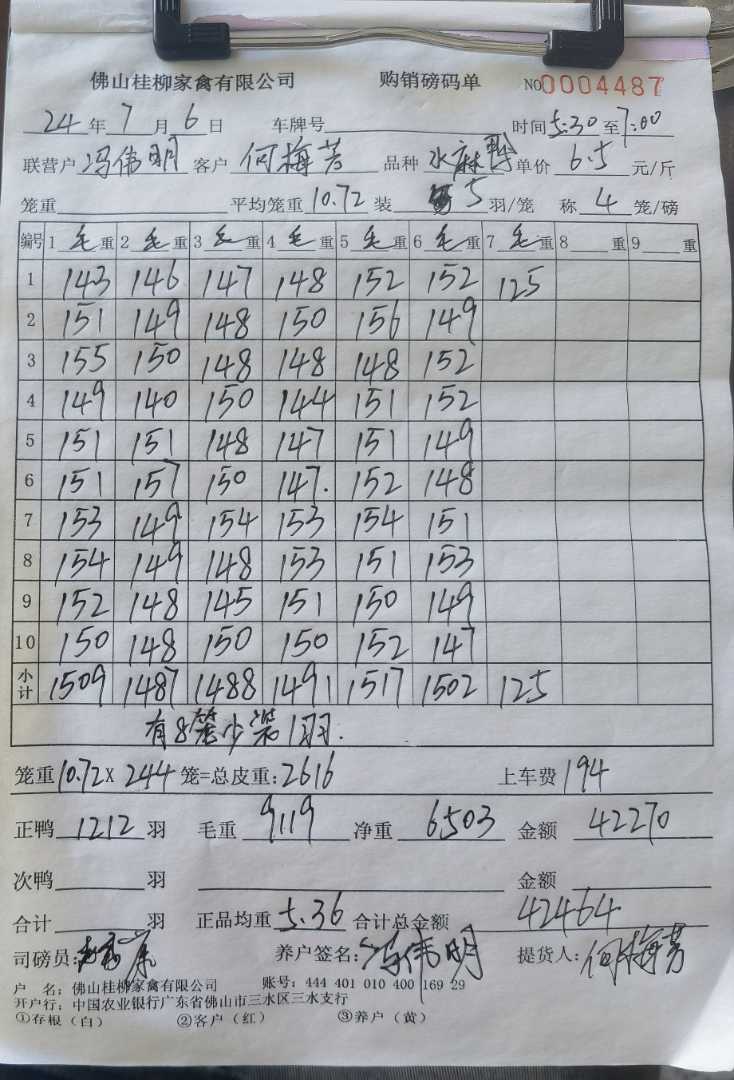 佛山桂柳家禽有限公司 购销磅码单 NO 0004487
24 年 7 月 6 日 车牌号 时间 5:30 至 7:00
联营户 冯伟明 客户 何梅芳 品种 水麻鸭 单价 6.5 元/斤
笼重 平均笼重 10.72 装 5 羽/笼 称 4 笼/磅
编号 1 毛 重 2 毛 重 3 毛 重 4 毛 重 5 毛 重 6 毛 重 7 毛 重 8 重 9 重
1 143 146 147 148 152 152 125
2 151 149 148 150 156 149
3 155 150 148 148 148 152
4 149 140 150 144 151 152
5 151 151 148 147 151 149
6 151 157 150 147. 152 148
7 153 149 154 153 154 151
8 154 149 148 153 151 153
9 152 148 145 151 150 149
10 150 148 150 150 152 147
小计 1509 1487 1488 1491 1517 1502 125
有8笼少装1羽.
笼重 10.72 X 244 笼=总皮重: 2616 上车费 194
正鸭 1212 羽 毛重 9119 净重 6503 金额 42270
次鸭 羽 金额
合计 羽 正品均重 5.36 合计总金额 42464
司磅员: 养户签名: 冯伟明 提货人: 何梅芳
户 名: 佛山桂柳家禽有限公司 账号: 444 401 010 400 169 29
开户行: 中国农业银行广东省佛山市三水区三水支行
①存根(白) ②客户(红) ③养户(黄)